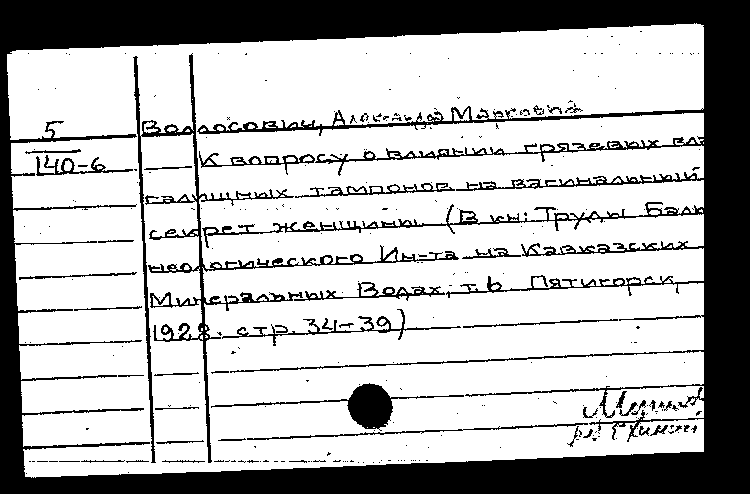 5
140-6
Волосович, Александр Маркович
К вопросу о влиянии грязевых вла
галищных тампонов на вагинальный
секрет женщины (В кн: Труды Баль
неологического Ин-та на Кавказских
Минеральных Водах, т. 6 Пятигорск,
1928. стр. 34-39)